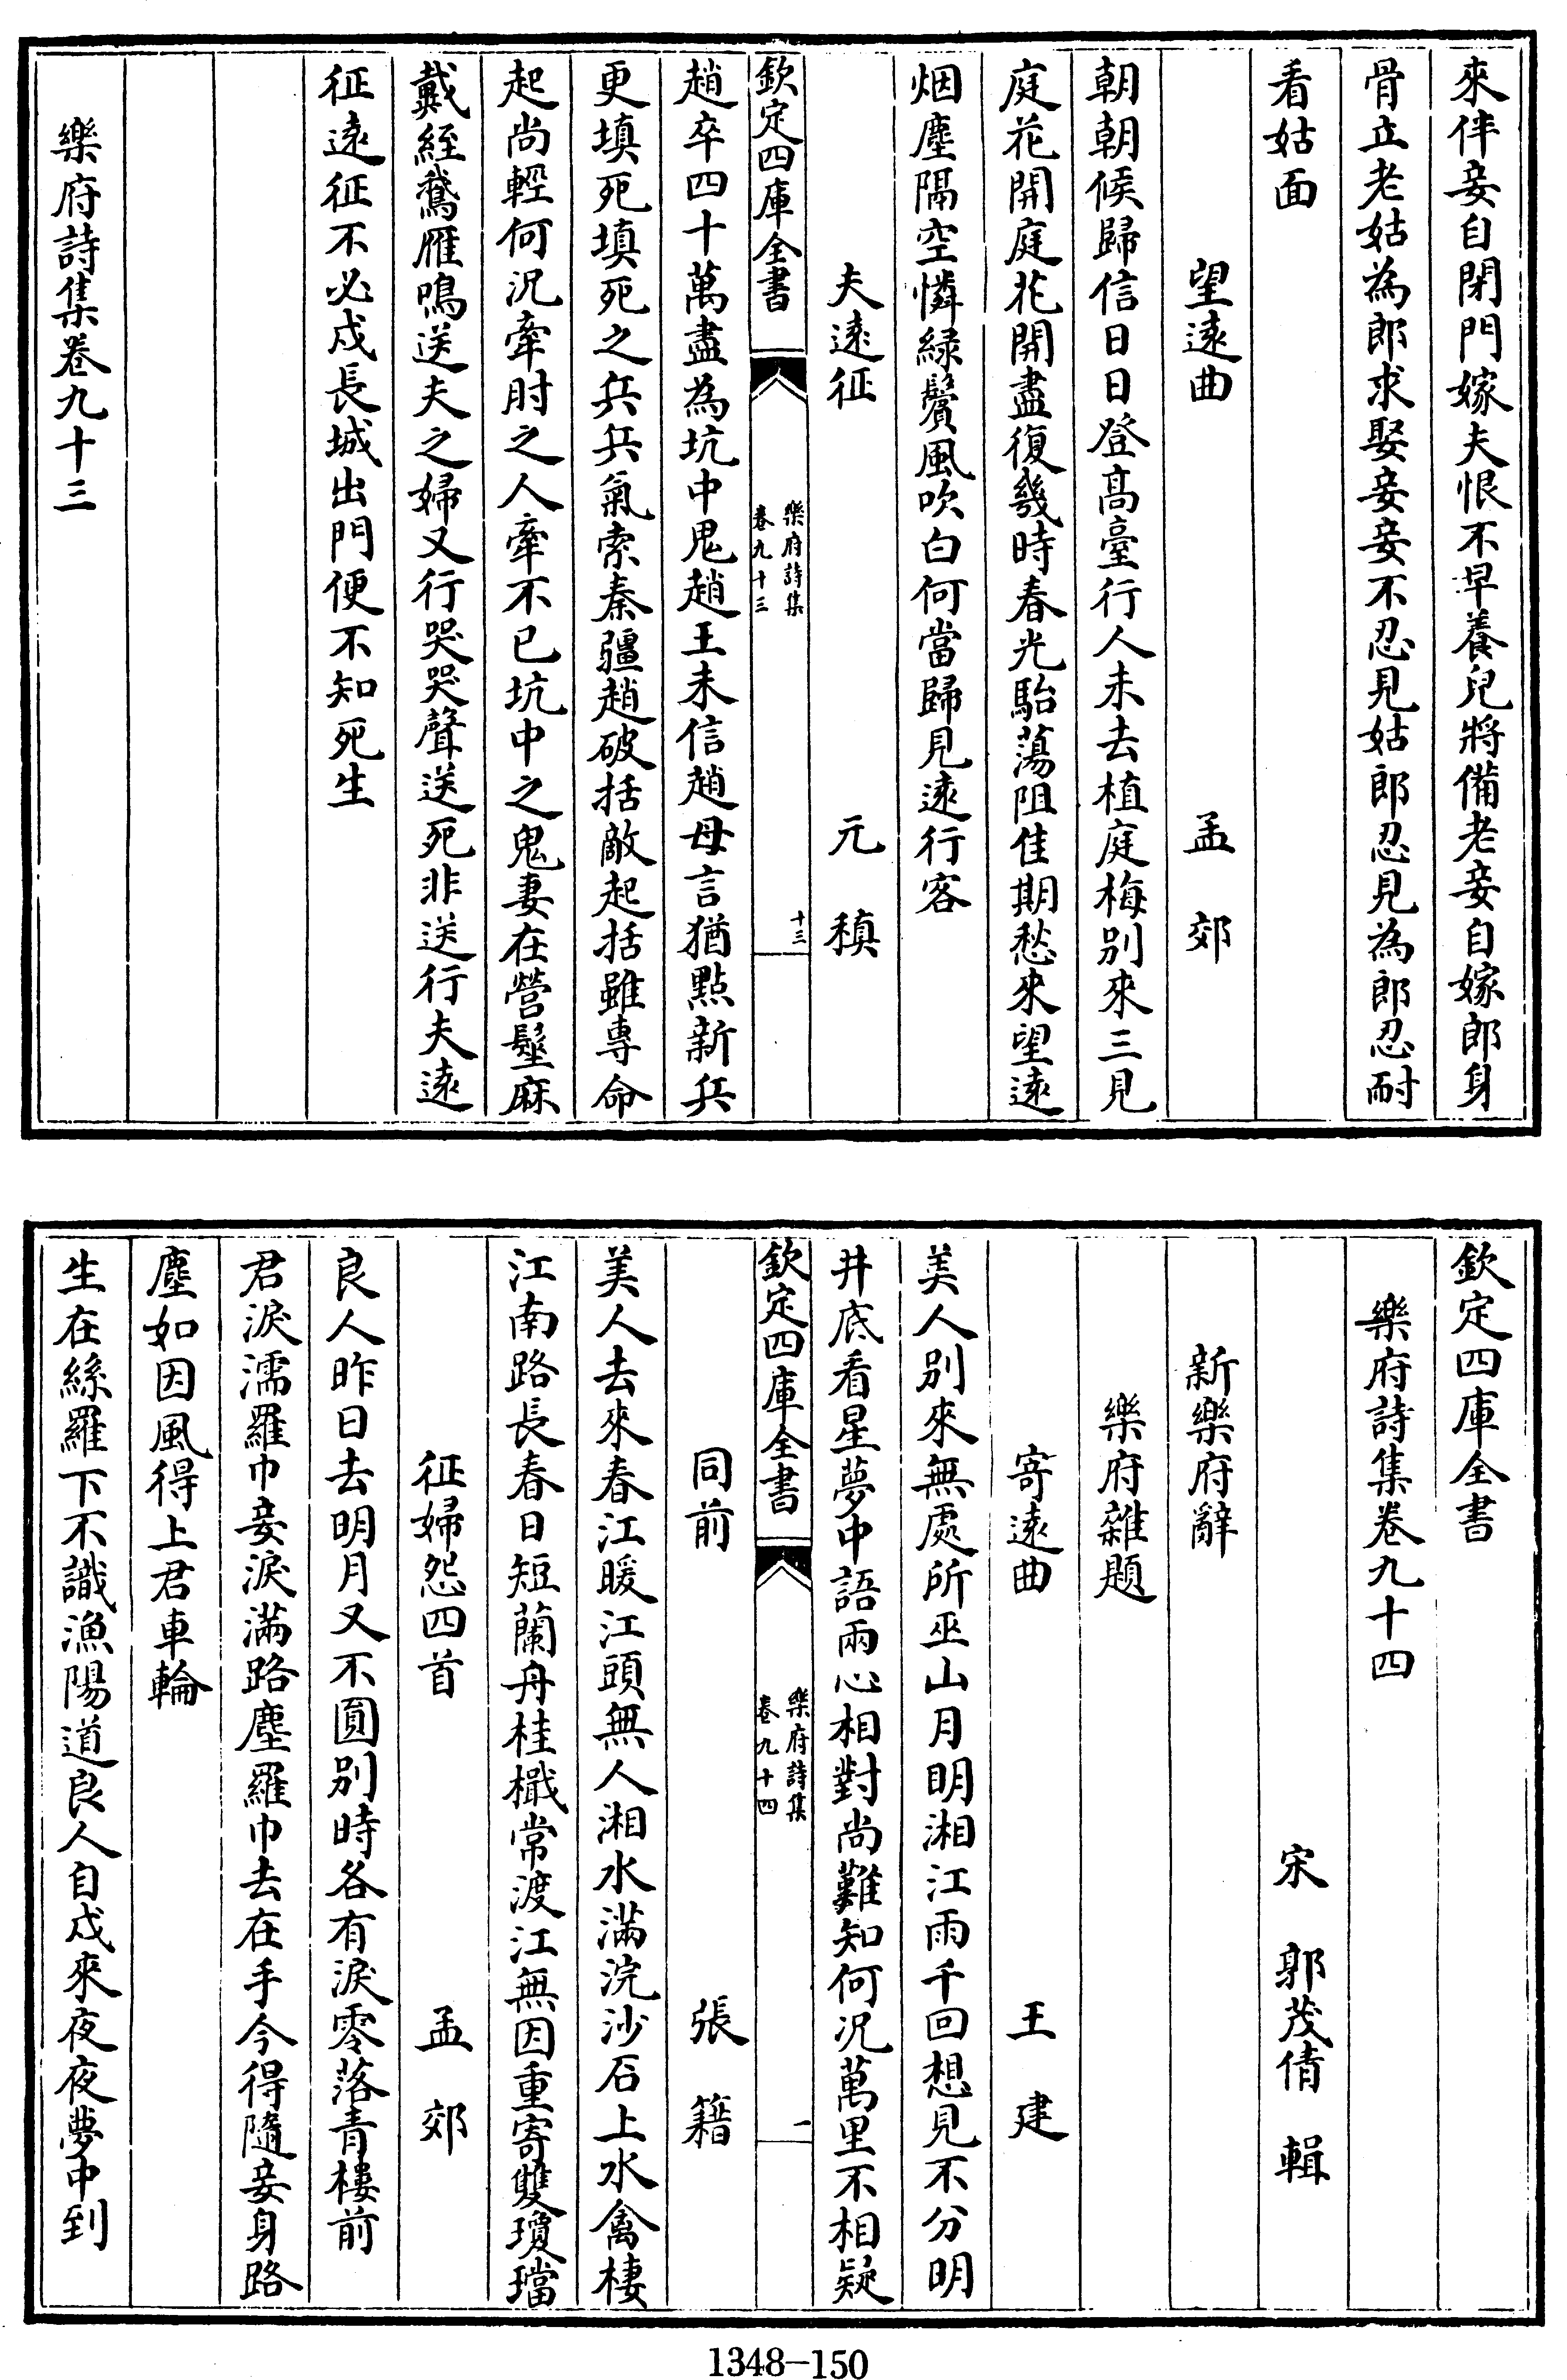 來伴妾自閉門嫁夫恨不早養兒將備老妾自嫁郎身
骨立老姑為郎求娶妾妾不忍見姑郎忍見為郎忍耐
看姑面
望遠曲 孟郊
朝朝候歸信日日登高臺行人未去植庭梅別來三見
庭花開庭花開盡復幾時春光駘蕩阻佳期愁來望遠
烟塵隔空憐綠鬢風吹白何當歸見遠行客
夫遠征 元稹
欽定四庫全書
樂府詩集
卷九十三
十三
趙卒四十萬盡為坑中鬼趙王未信趙母言猶點新兵
更填死填死之兵兵氣索秦彊趙破括敵起括雖專命
起尚輕何況牽肘之人牽不已坑中之鬼妻在營髽麻
戴絰鵞雁鳴送夫之婦又行哭哭聲送死非送行夫遠
征遠征不必戍長城出門便不知死生
樂府詩集卷九十三
欽定四庫全書
樂府詩集卷九十四
宋 郭茂倩 輯
新樂府辭
樂府雜題
寄遠曲 王建
美人別來無處所巫山月明湘江雨千回想見不分明
井底看星夢中語兩心相對尚難知何況萬里不相疑
欽定四庫全書
樂府詩集
卷九十四
一
同前 張籍
美人去來春江暖江頭無人湘水滿浣沙石上水禽棲
江南路長春日短蘭舟桂檝常渡江無因重寄雙瓊璫
征婦怨四首 孟郊
良人昨日去明月又不圓別時各有淚零落青樓前
君淚濡羅巾妾淚滿路塵羅巾去在手今得隨妾身路
塵如因風得上君車輪
生在絲羅下不識漁陽道良人自戍來夜夜夢中到
1348-150